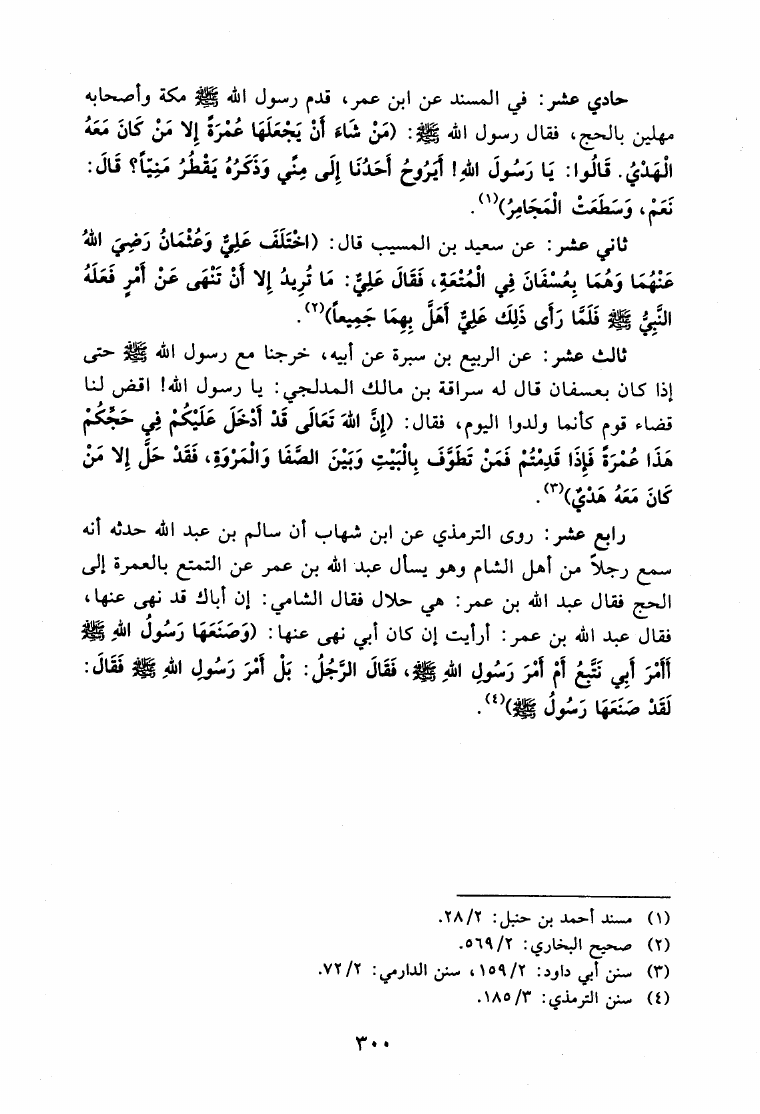 حادي عشر: في المسند عن ابن عمر، قدم رسول الله ﷺ مكة وأصحابه
مهلين بالحج، فقال رسول الله ﷺ: (مَنْ شَاءَ أَنْ يَجْعَلَهَا عُمْرَةً إِلا مَنْ كَانَ مَعَهُ
الْهَدْيُ. قَالُوا: يَا رَسُولَ اللهِ! أَيَرُوحُ أَحَدُنَا إِلَى مِنًي وَذَكَرُهُ يَقْطُرُ مَنِيّاً؟ قَالَ:
نَعَمْ، وَسَطَعَتْ الْمَجَامِرُ)(١).
ثاني عشر: عن سعيد بن المسيب قال: (اخْتَلَفَ عَلِيٌّ وَعُثْمَانُ رَضِيَ اللهُ
عَنْهُمَا وَهُمَا بِعُسْفَانَ فِي الْمُتْعَةِ، فَقَالَ عَلِيٌّ: مَا تُرِيدُ إِلا أَنْ تَنْهَى عَنْ أَمْرٍ فَعَلَهُ
النَّبِيُّ ﷺ فَلَمَّا رَأى ذَلِكَ عَلِيٌّ أَهَلَّ بِهِمَا جَمِيعاً)(٢).
ثالث عشر: عن الربيع بن سبرة عن أبيه، خرجنا مع رسول الله ﷺ حتى
إذا كان بعسفان قال له سراقة بن مالك المدلجي: يا رسول الله! اقض لنا
قضاء قوم كأنما ولدوا اليوم، فقال: (إِنَّ اللهَ تَعَالَى قَدْ أَدْخَلَ عَلَيْكُمْ فِي حَجِّكُمْ
هَذَا عُمْرَةً فَإِذَا قَدِمْتُمْ فَمَنْ تَطَوَّفَ بِالْبَيْتِ وَبَيْنَ الصَّفَا وَالْمَرْوَةِ، فَقَدْ حَلَّ إِلا مَنْ
كَانَ مَعَهُ هَدْيٌ)(٣).
رابع عشر: روى الترمذي عن ابن شهاب أن سالم بن عبد الله حدثه أنه
سمع رجلاً من أهل الشام وهو يسأل عبد الله بن عمر عن التمتع بالعمرة إلى
الحج فقال عبد الله بن عمر: هي حلال فقال الشامي: إن أباك قد نهى عنها،
فقال عبد الله بن عمر: أرأيت إن كان أبي نهى عنها: (وَصَنَعَهَا رَسُولُ اللهِ ﷺ
أَأَمْرَ أَبِي نَتَّبِعُ أَمْ أَمْرَ رَسُولِ اللهِ ﷺ، فَقَالَ الرَّجُلُ: بَلْ أَمْرَ رَسُولِ اللهِ ﷺ فَقَالَ:
لَقَدْ صَنَعَهَا رَسُولُ ﷺ)(٤).
(١) مسند أحمد بن حنبل: ٢/ ٢٨.
(٢) صحيح البخاري: ٢/ ٥٦٩.
(٣) سنن أبي داود: ٢/ ١٥٩، سنن الدارمي: ٢/ ٧٢.
(٤) سنن الترمذي: ٣/ ١٨٥.
٣٠٠